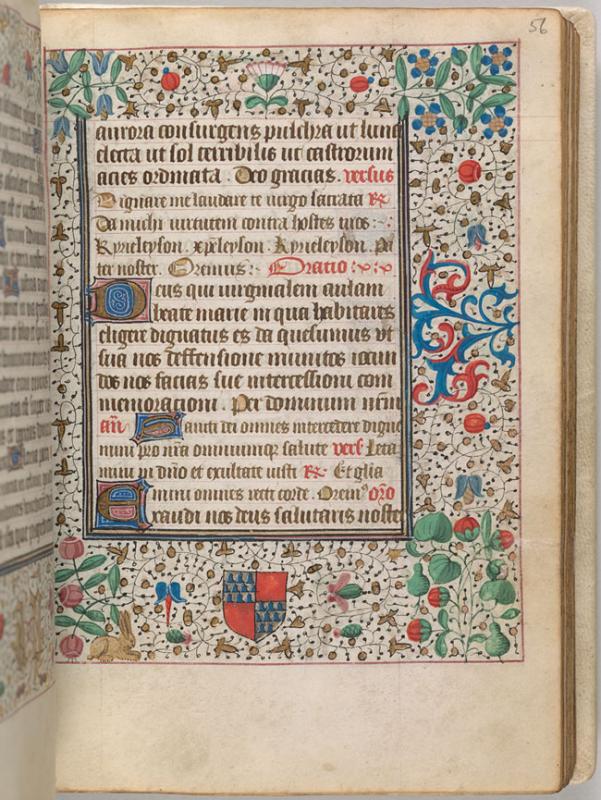 56
aurora consurgens pulchra ut luna
electa ut sol terribilis ut castrorum
acies ordinata. Deo gracias. versus
Dignare me laudare te virgo sacrata R
Da michi virtutem contra hostes tuos:
Kyrieleyson. xpeleyson. Kyrieleyson. Pa
ter noster. Oremus: Oratio:
Deus qui virginalem aulam
beate marie in qua habitares
eligere dignatus es da quesumus vt
sua nos deffensione munitos iocun
dos nos facias sue intercessioni com
memoracioni. Per dominum nrm
an Sancti dei omnes intercedere digne
mini pro nra omniumqz salute vers Leta
mini in dno et exultate iusti R Et glia
mini omnes recti corde. Orem9 oro
Exaudi nos deus salutaris noster